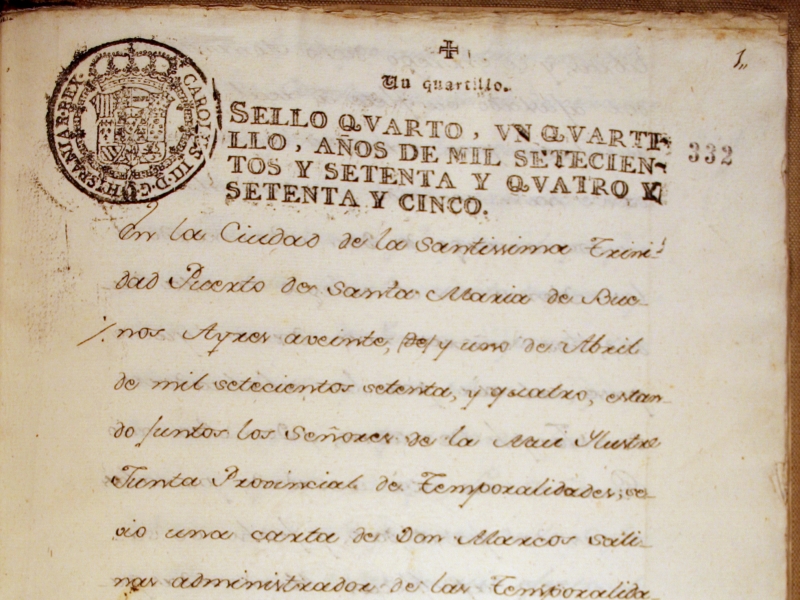 1,,
Un quartillo.
CAROLUS III·D·G·HISPANIAR·REX·
SELLO QVARTO, VN QVARTI-
LLO, AÑOS DE MIL SETECIEN-
TOS Y SETENTA Y QVATRO Y
SETENTA Y CINCO.
332
En la Ciudad de la Santissima Trini-
dad Puerto de Santa Maria de Bue-
nos Ayres a veinte, (de) y uno de Abril
de mil setecientos setenta, y quatro, estan-
do Juntos los Señores de la Mui Ylustre
Junta Provincial de Temporalidades, se
vio una carta de Don Marcos Sali-
nas administrador de las Temporalida-